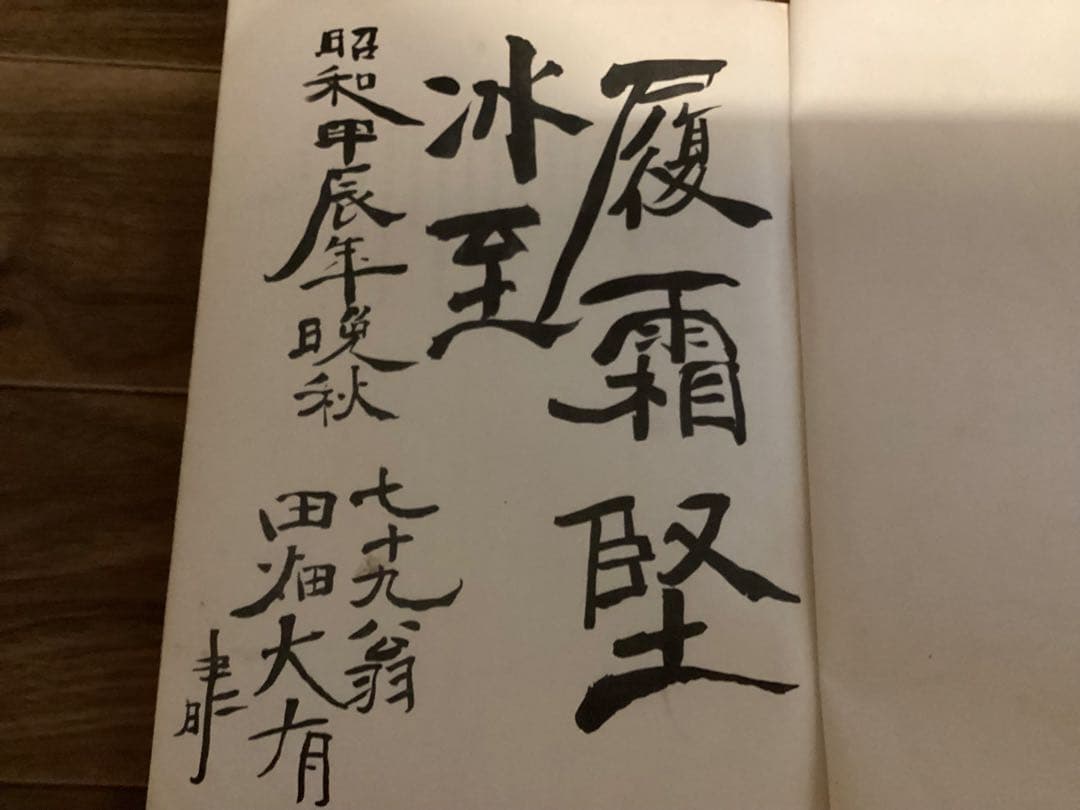 履霜堅
冰至
昭和甲辰年晩秋
七十九翁
田畑大有